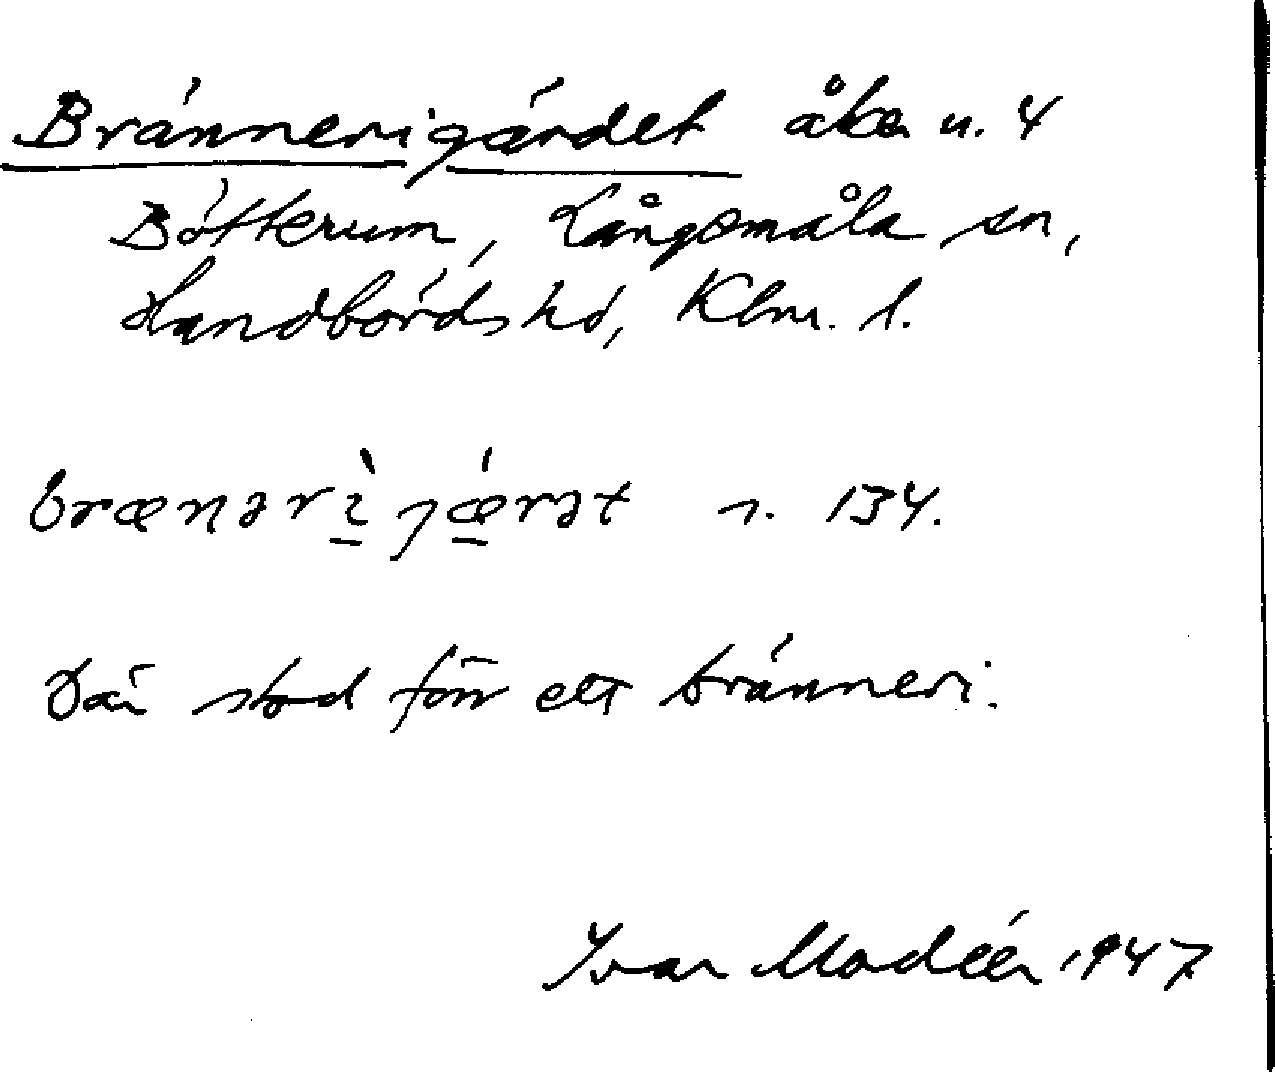 Brännerigärdet åker u. 4
Bötterum, Långemåla sn,
Handbörds hd, Klm. l.
brænəri jærət s. 134.
Där stod förr ett bränneri.
Ivar Modéer 1947